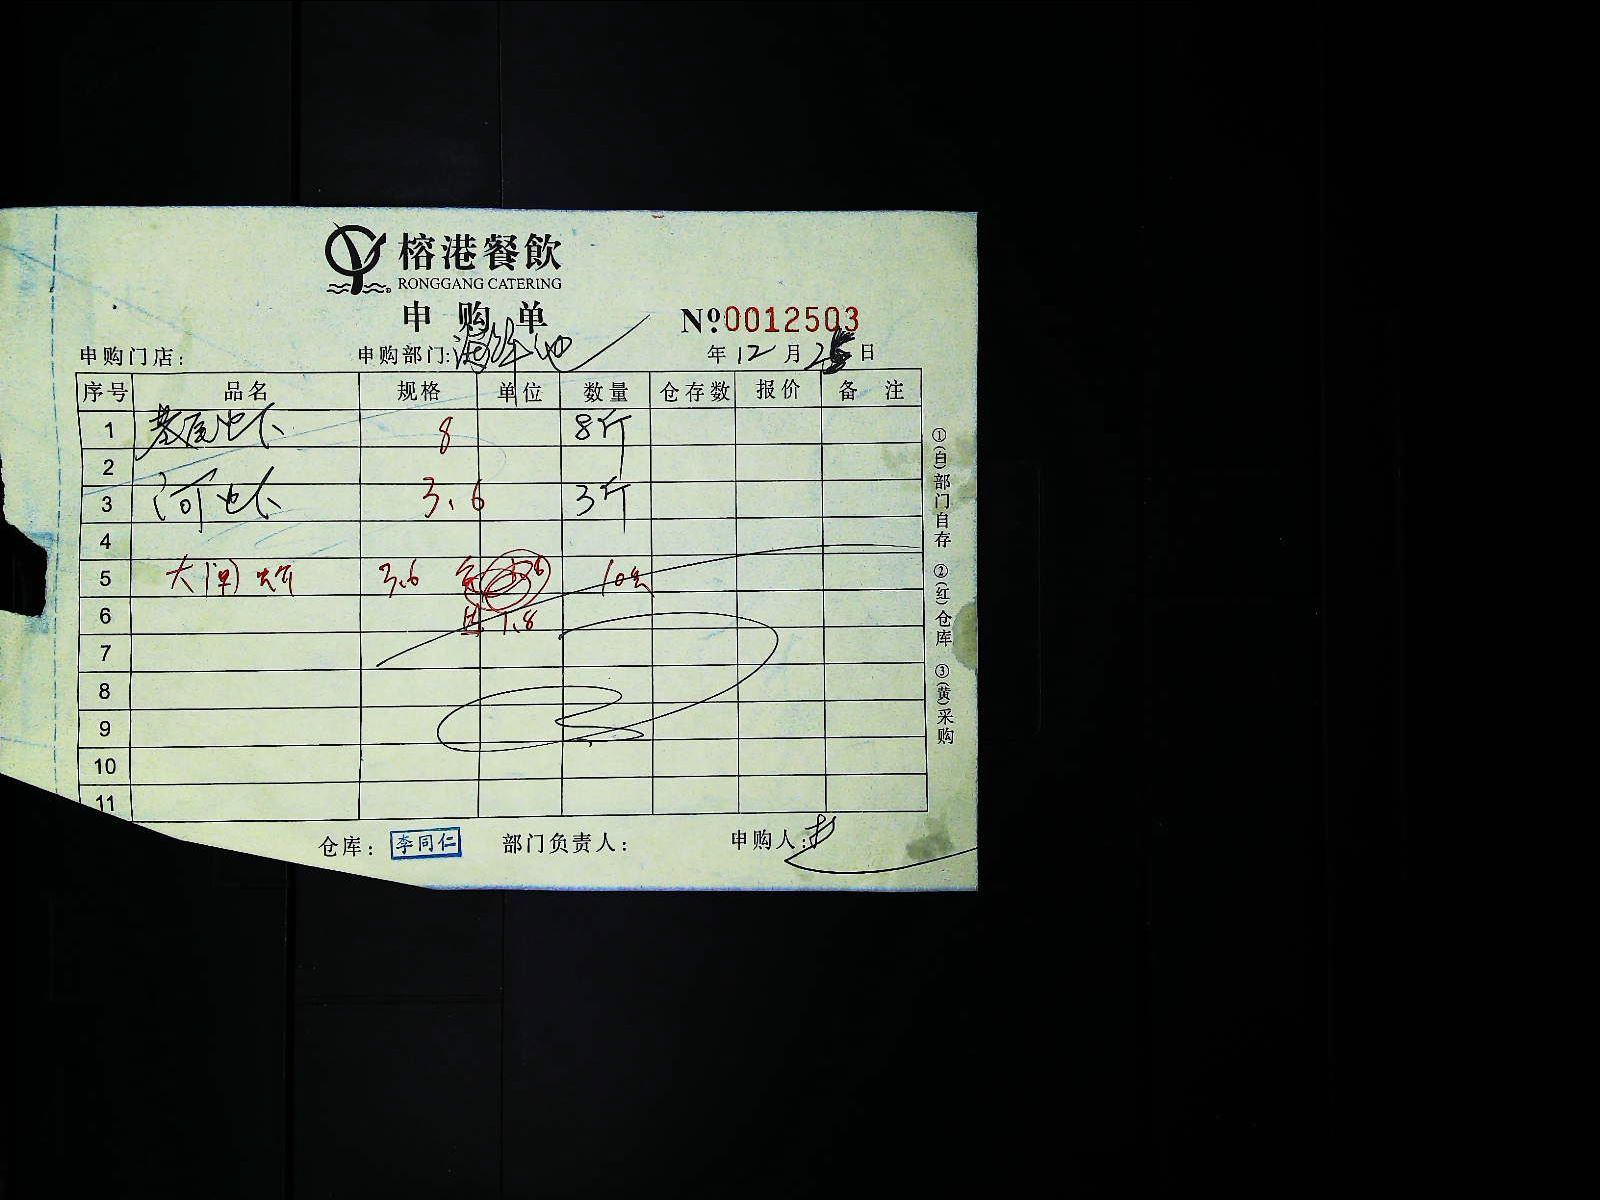 榕港餐飲
RONGGANG CATERING
申购单
Nº0012503
申购门店: 申购部门:海鲜池 年 12 月 日
序号 品名 规格 单位 数量 仓存数 报价 备注
1 基尾虾 8 8斤
2
3 河虾 3.6 3斤
4
5 大闸蟹 3.6 10只
6 1.8
7
8
9
10
11
仓库: 李同仁 部门负责人: 申购人:
①(白)部门自存 ②(红)仓库 ③(黄)采购